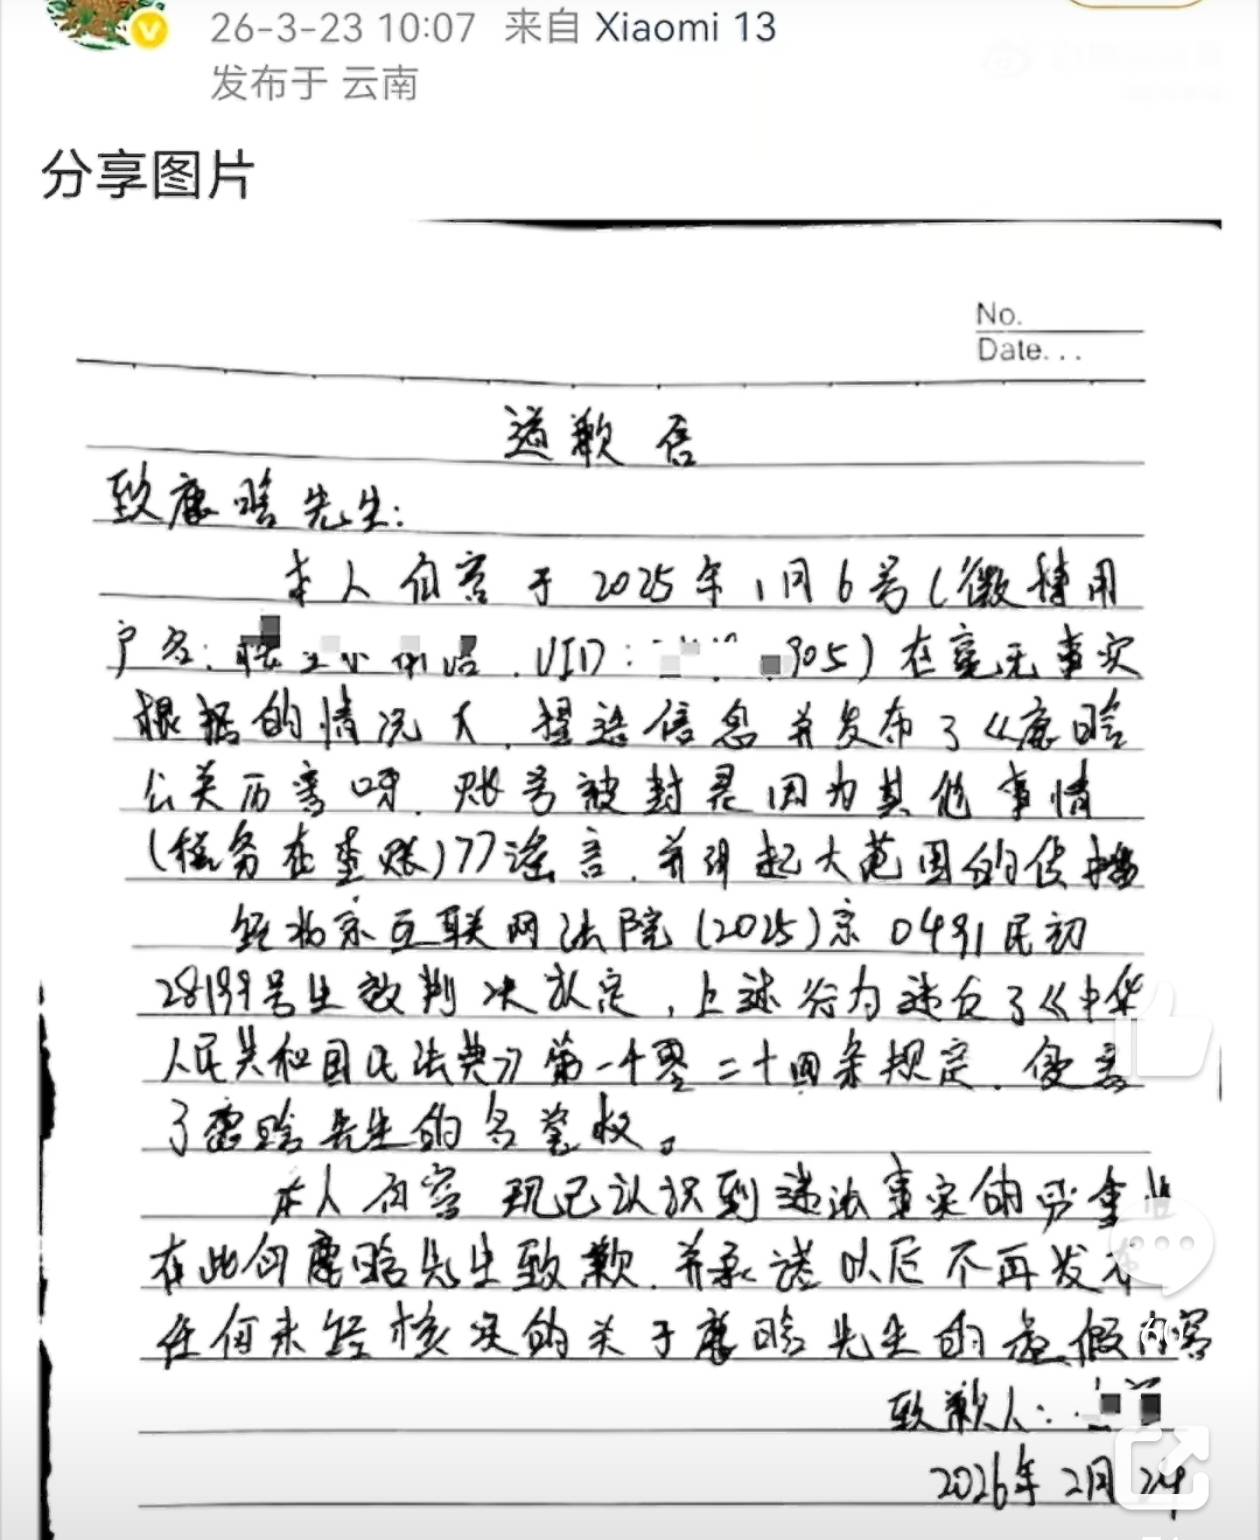 26-3-23 10:07 来自 Xiaomi 13
发布于 云南
分享图片
No.
Date...
道歉信
致康晗先生:
本人何容于2025年1月6号(微博用
户名: UID: 305)在毫无事实
根据的情况下,捏造信息并发布了《康晗
公关厉害呀,账号被封是因为其他事情
(税务在查账)》谣言,并引起大范围的传播
经北京互联网法院(2025)京0491民初
28199号生效判决认定,上述行为违反了《中华
人民共和国民法典》第一千零二十四条规定,侵害
了康晗先生的名誉权。
本人何容现已认识到违法事实的严重性
在此向康晗先生致歉,并承诺以后不再发布
任何未经核实的关于康晗先生的虚假内容
致歉人:
2026年2月24
60